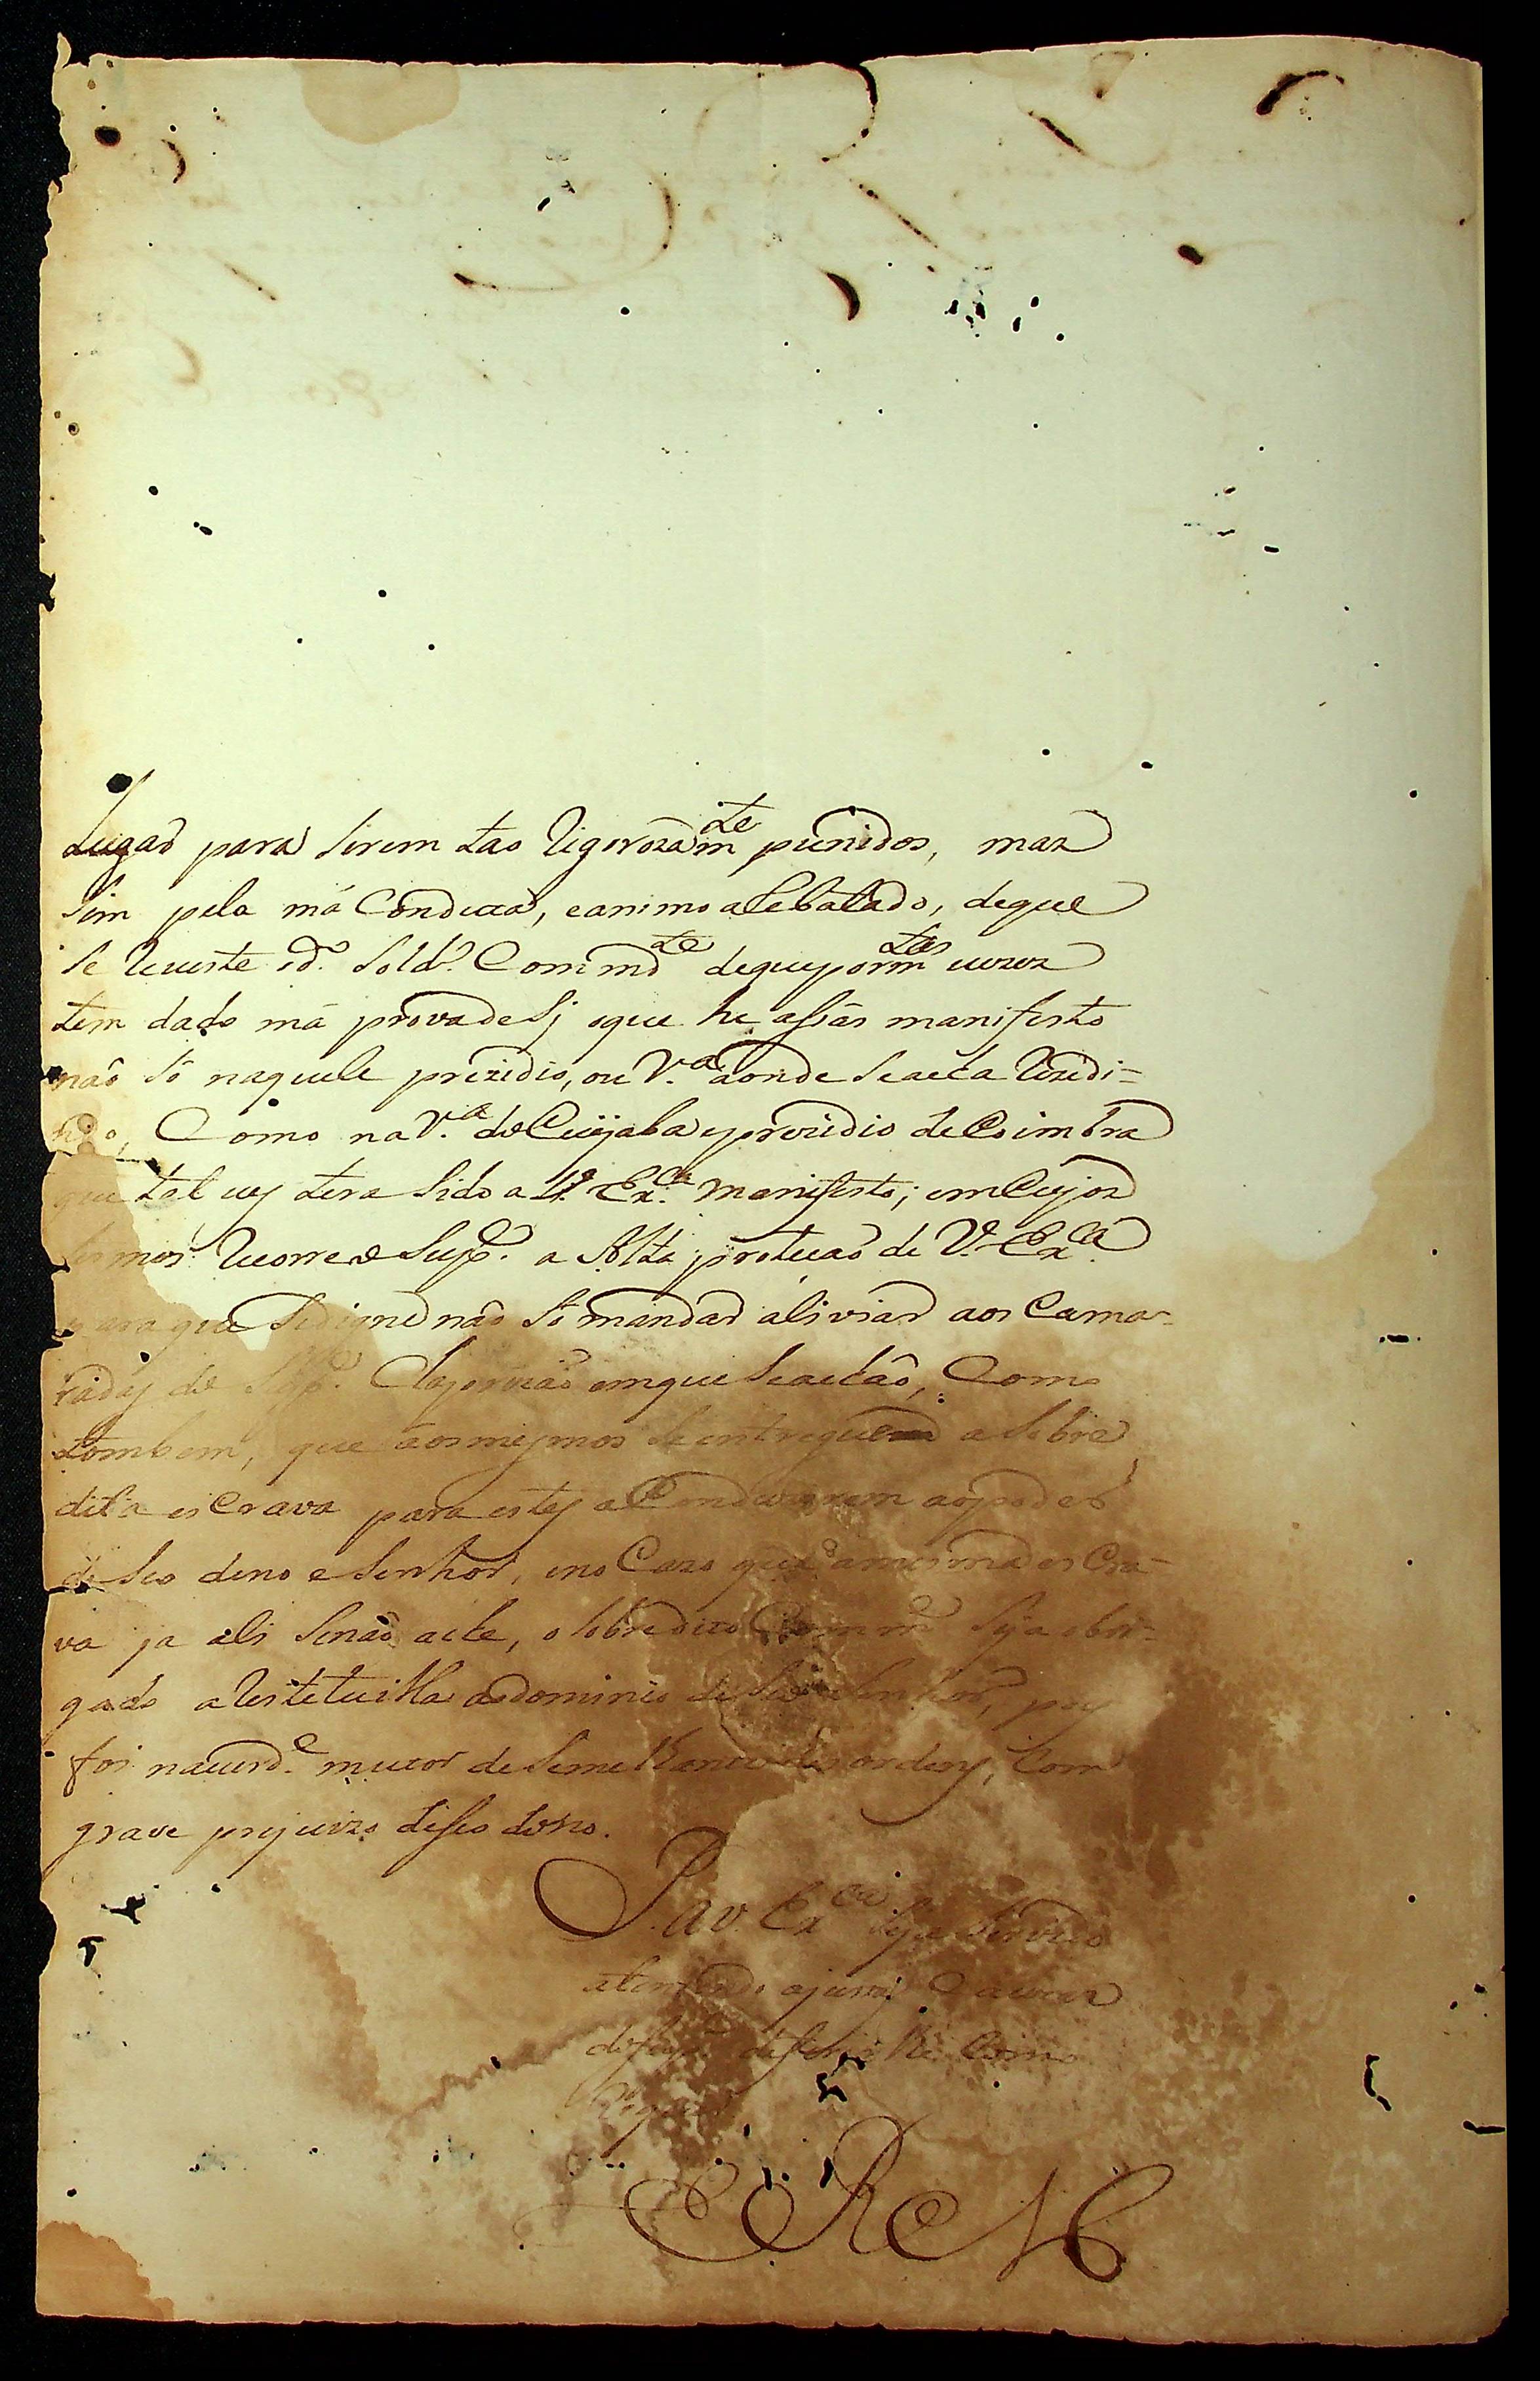 Lugar para serem tao rigorozam.te punidos, mas
sim pela má Conducta, e animo arebatado, de que
se reveste o d.º Sold.º Comm.de de que por m.tas vezes
tem dado má prova de sj o que he assás manifesto
não só naquele prezidio, ou V.ª aonde se acha rezidi-
ndo, Como na V.ª do Cuyaba e prezidio de Coimbra
que tal vez tera sido a V. Ex.cia manifesto; em cujos
termos recorre o Sup.e a Alta proteção de V. Ex.cia
para que se digne não só mandar aliviar aos Cama-
radas do Sup.e da prizão em que se achão, Como
tombem, que aos mesmos se entregue a sobre
dita esCrava para estes a Conduzirem ao poder
de seo dono e Senhor, e no Cazo que a mesma esCra-
va ja ali se não ache, o sobredito Comm.e seja obri-
gado a restetuilla ao dominio de seo Senhor, pois
foi na verd.e mutor de semelhantes desordens, Com
grave prejuizo de seo dono.
P. a V. Ex.cia seja servido
atendendo a justas Cauzas
do Sup.e deferirlhe Como
Roga
E R M